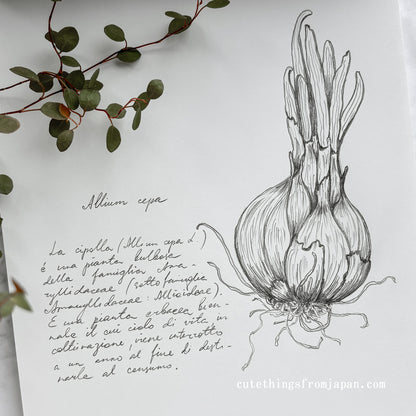 Allium cepa
La cipolla (Allium cepa L.)
è una pianta bulbosa
della famiglia Ama-
ryllidaceae (sottofamiglia
Amaryllidaceae: Allioideae).
È una pianta erbacea bien-
nale il cui ciclo di vita in
coltivazione, viene interrotto
a un anno al fine di desti-
narla al consumo.
cutethingsfromjapan.com